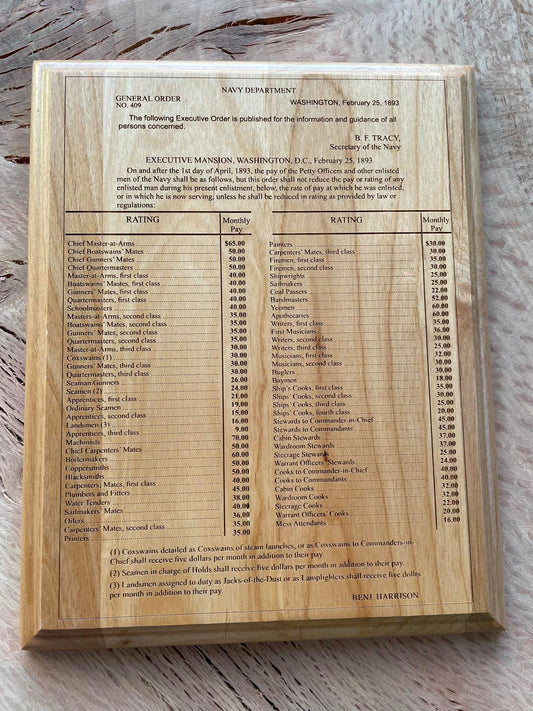 NAVY DEPARTMENT
GENERAL ORDER
NO. 409
WASHINGTON, February 25, 1893
The following Executive Order is published for the information and guidance of all
persons concerned.
B. F. TRACY,
Secretary of the Navy
EXECUTIVE MANSION, WASHINGTON, D.C., February 25, 1893
On and after the 1st day of April, 1893, the pay of the Petty Officers and other enlisted
men of the Navy shall be as follows, but this order shall not reduce the pay or rating of any
enlisted man during his present enlistment, below, the rate of pay at which he was enlisted,
or in which he is now serving, unless he shall be reduced in rating as provided by law or
regulations:
RATING Monthly
Pay
Chief Master-at-Arms $65.00
Chief Boatswains' Mates 50.00
Chief Gunners' Mates 50.00
Chief Quartermasters 50.00
Master-at-Arms, first class 40.00
Boatswains' Mastes, first class 40.00
Gunners' Mates, first class 40.00
Quartermasters, first class 40.00
Schoolmasters 40.00
Masters-at Arms, second class 35.00
Boatswains' Mates, second class 35.00
Gunners' Mates, second class 35.00
Quartermasters, second class 35.00
Master-at-Arms, third class 30.00
Coxswains (1) 30.00
Gunners' Mates, third class 30.00
Quartermasters, third class 30.00
Seaman Gunners 26.00
Seamen (2) 24.00
Apprentices, first class 21.00
Ordinary Seamen 19.00
Apprentices, second class 15.00
Landsmen (3) 16.00
Apprentices, third class 9.00
Machinists 70.00
Chief Carpenters' Mates 50.00
Boilermakers 60.00
Coppersmiths 50.00
Blacksmiths 50.00
Carpenters; Mates, first class 40.00
Plumbers and Fitters 45.00
Water Tenders 38.00
Sailmakers' Mates 40.00
Oilers 36.00
Carpenters' Mates, second class 35.00
Printers 35.00
RATING Monthly
Pay
Painters $30.00
Carpenters' Mates, third class 30.00
Firemen, first class 35.00
Firemen, second class 30.00
Shipwrights 25.00
Sailmakers 25.00
Coal Passers 22.00
Bandmasters 52.00
Yeomen 60.00
Apothecaries 60.00
Writers, first class 35.00
First Musicians 36.00
Writers, second class 30.00
Writers, third class 25.00
Musicians, first class 32.00
Musicians, second class 30.00
Buglers 30.00
Baymen 18.00
Ship's Cooks, first class 35.00
Ships' Cooks, second class 30.00
Ships' Cooks, third class 25.00
Ships' Cooks, fourth class 20.00
Stewards to Commander-in-Chief 45.00
Stewards to Commandants 45.00
Cabin Stewards 37.00
Wardroom Stewards 37.00
Steerage Stewards 25.00
Warrant Officers' Stewards 24.00
Cooks to Commander-in-Chief 40.00
Cooks to Commandants 40.00
Cabin Cooks 32.00
Wardroom Cooks 32.00
Steerage Cooks 22.00
Warrant Officers' Cooks 20.00
Mess Attendants 16.00
(1) Coxswains detailed as Coxswains of steam launches, or as Coxswains to Commanders-in-
Chief shall receive five dollars per month in addition to their pay.
(2) Seamen in charge of Holds shall receive five dollars per month in addition to their pay.
(3) Landsmen assigned to duty as Jacks-of-the-Dust or as Lamplighters shall receive five dollrs
per month in addition to their pay.
BENJ. HARRISON